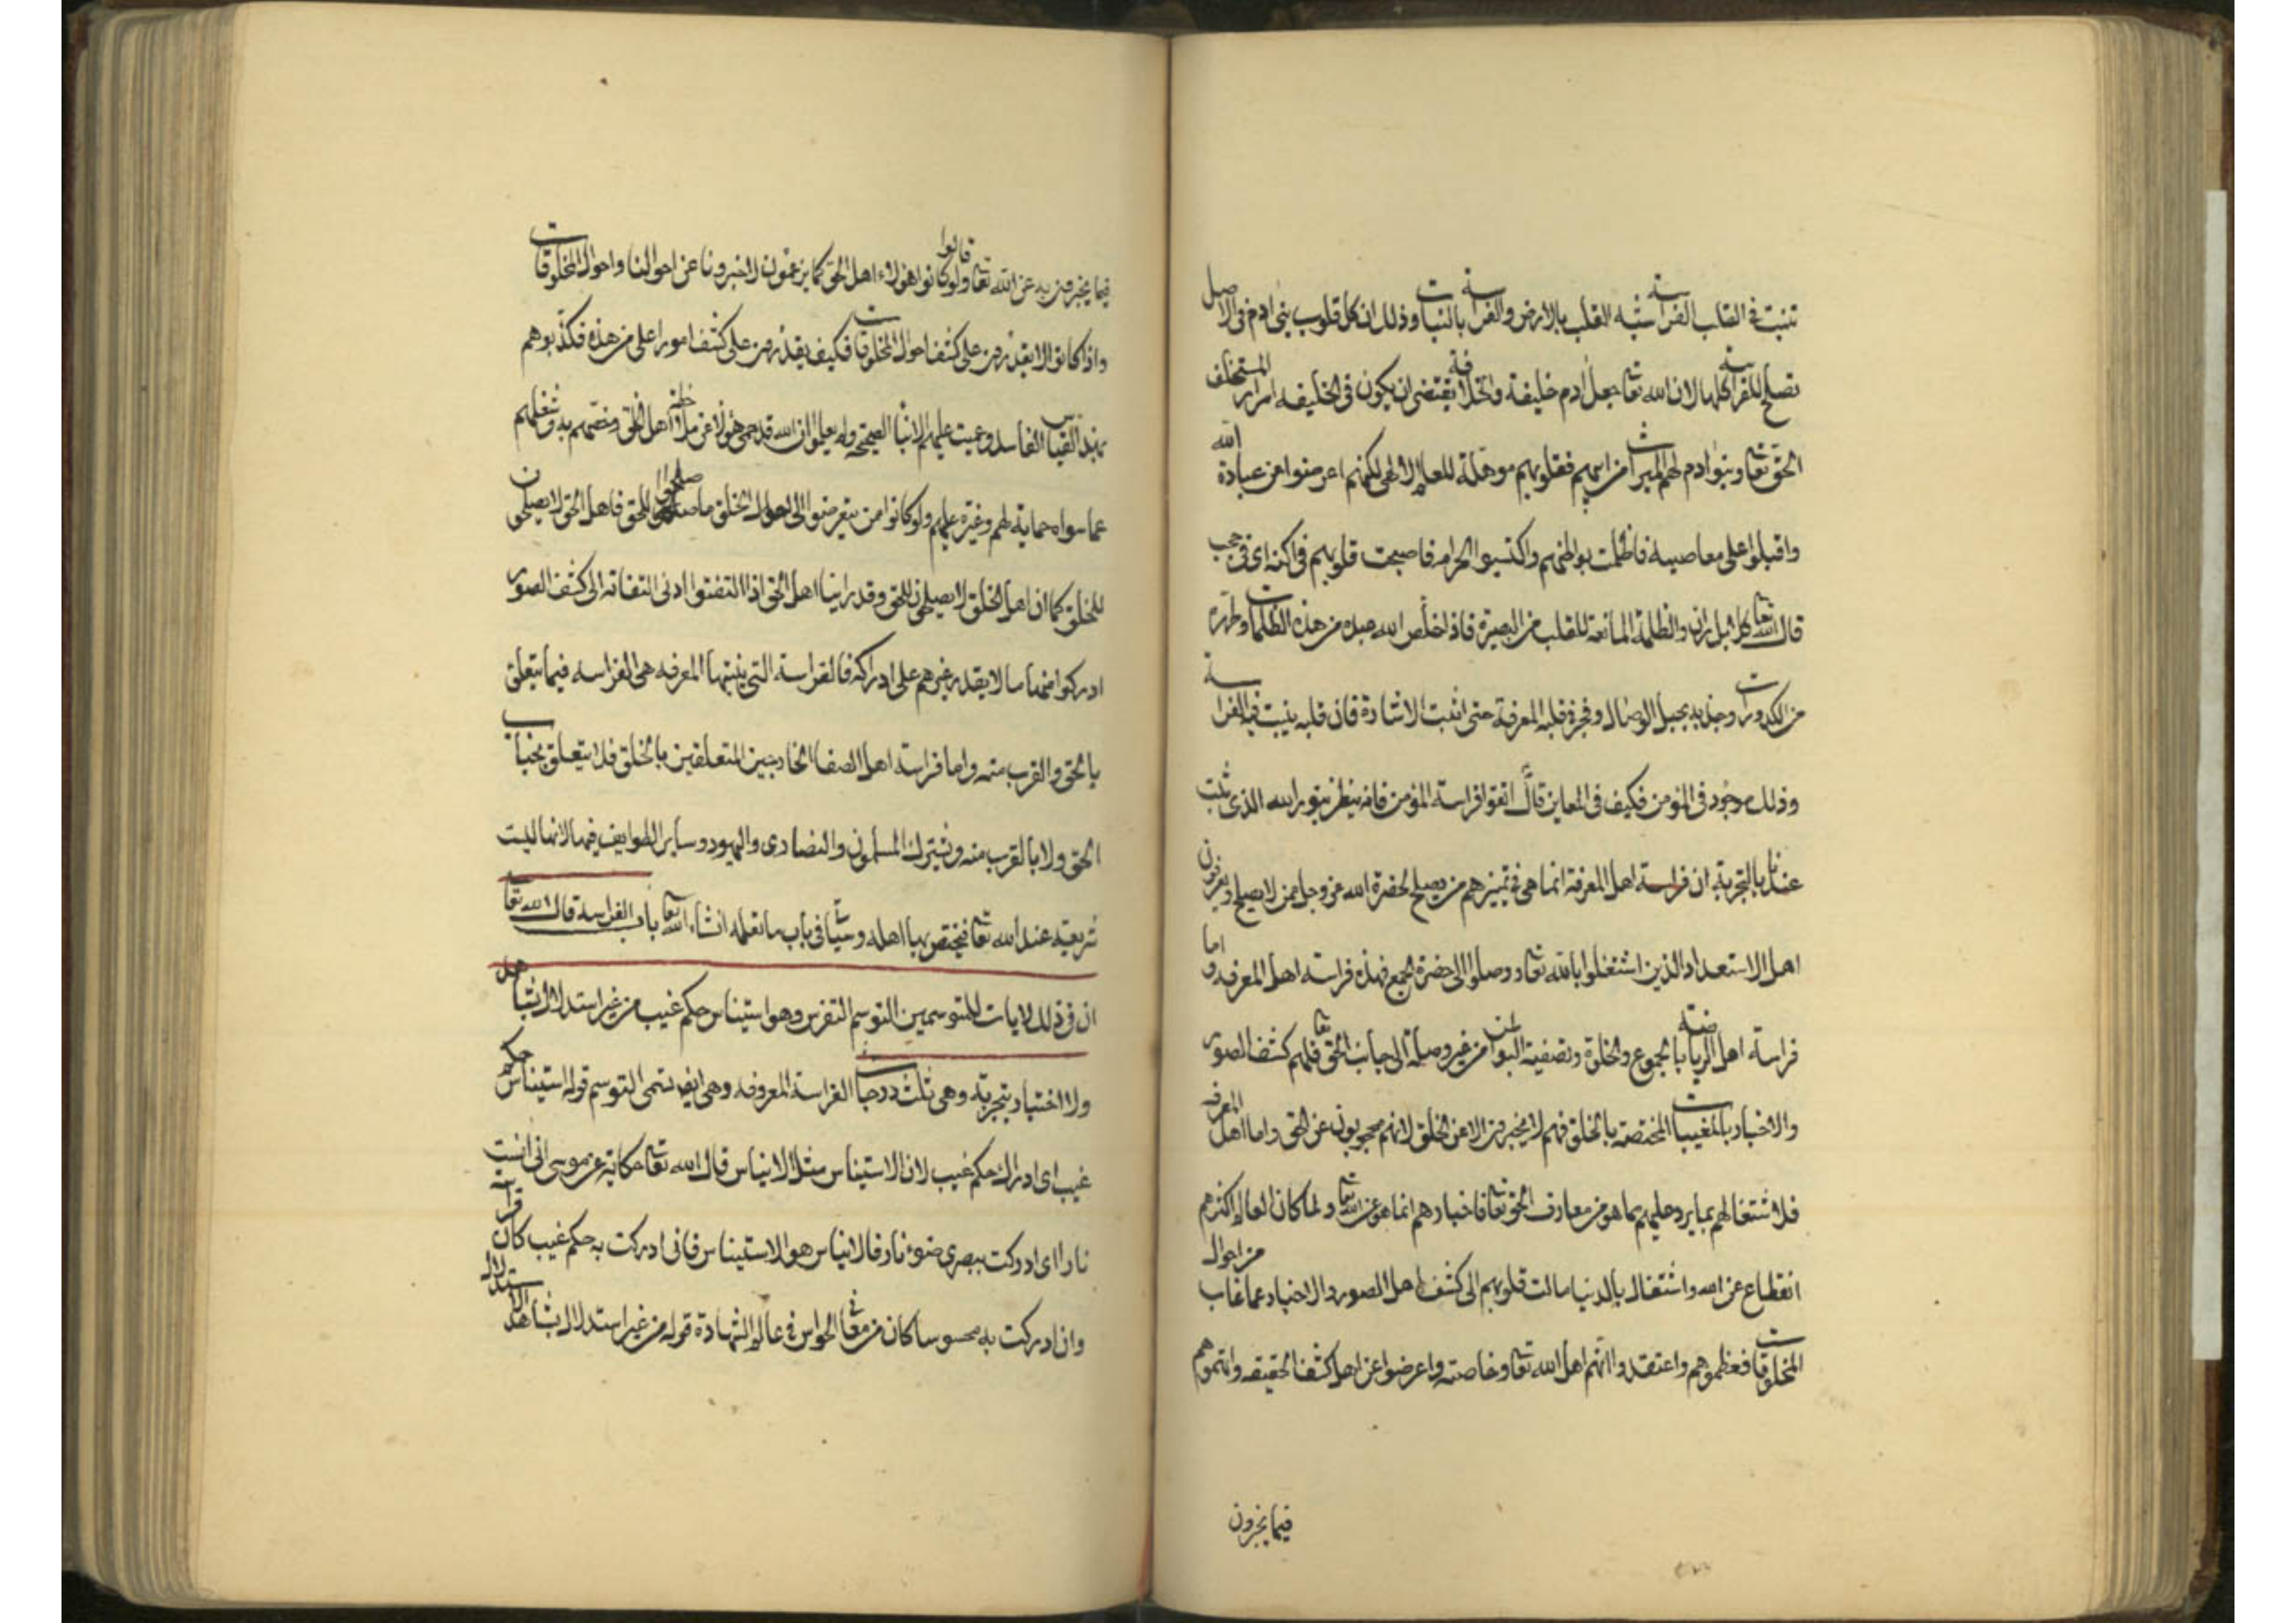 تنبت في القلب الفراسة شبه القلب بالارض والفراسة بالنبات وذلك ان كل قلوب بني ادم في الاصل
تصلح للفراسة كلها لان الله تعا جعل ادم خليفة والخلافة يقتضي ان يكون في الخليفه اسرار المستخلف
الحق تعا وبنوا ادم لهم الميراث من ابيهم فقلوبهم موهلة للعلم الالهي لكنهم اعرضوا عن عبادة الله
واقبلوا على معاصيه فاظلمت بواطنهم واكتسبوا الحرام فاصبحت قلوبهم في اكنة اى في حجب
قال الله تعا كلا بل ران والظلمة المانعة للقلب من البصيرة فاذا خلص الله عبده من هذه الظلمات وطهره
من الكدورات وجذبه بحبل الوصال وفجر في قلبه المعرفة حتى انبت الاشارة فان قلبه ينبت فيه الفراسة
وذلك موجود في المؤمن فكيف في المعاين قال اتقوا فراسة المؤمن فانه ينظر بنور الله الذى ثبت
عندنا بالتجربة ان فراسة اهل المعرفة انما هي في تميزهم من يصلح لحضرة الله عز وجل ممن لا يصلح ويعرفون
اهل الاستعداد الذين اشتغلوا بالله تعا ووصلوا الى حضرة الجمع فهذه فراسة اهل المعرفه واما
فراسة اهل الرياضة بالجوع والخلوة وتصفية البواطن من غير وصلة الى جانب الحق تعا فلهم كشف الصور
والاخبار بالمغيبات المختصة بالخلق فهم لا يخبرون الا عن الخلق لانهم محجوبون عن الحق واما اهل المعرفه
فلاشتغالهم بما يرد عليهم مما هو من معارف الحق تعا فاخبارهم انما هو عن الله تعا ولما كان العالم اكثرهم
انقطاع عن الله واشتغال بالدنيا مالت قلوبهم الى كشف اهل الصور والاخبار عما غاب من احوال
المخلوقات فعظموهم واعتقدوا انهم اهل الله تعا وخاصته واعرضوا عن اهل كشف الحقيقه واتهموهم
فيما يخبرون
فيما يخبرون به عن الله تعا وقالوا لو كانوا هؤلاء اهل الحق كما يزعمون لاخبرونا عن احوالنا واحوال المخلوقات
واذا كانوا لا يقدرون على كشف احوال المخلوقات فكيف يقدرون على كشف امور اعلى من هذه فكذبوهم
بهذا القياس الفاسد وعميت عليهم الانباء الصحيحة ولم يعلموا ان الله قد حمى هؤلاء عن ملاحظة اهل الخلق وخصهم به وشغلهم
عما سواه حماية لهم وغيرة عليهم ولو كانوا ممن يتعرضوا الى احوال الخلق ما صلحوا للحق فاهل الحق لا يصلحون
للخلق كما ان اهل الخلق لا يصلحون للحق وقد راينا اهل الحق اذا التفتوا ادنى التفاته الى كشف الصور
ادركوا منها ما لا يقدر غيرهم على ادراكه فالفراسة التي ينبتها المعرفه هي الفراسه فيما يتعلق
بالحق والقرب منه واما فراسة اهل الصفا الخارجين المتعلقين بالخلق فلا يتعلق بجناب
الحق ولا بالقرب منه ويشترك المسلمون والنصارى واليهود وساير الطوايف فيها لانها ليست
شريفة عند الله تعا فيختص بها اهله وسياتي في باب ما نعلمه انشاء الله تعا باب الفراسه قال الله تعا
ان في ذلك لايات للمتوسمين التوسم التفرس وهو استيناس حكم غيب من غير استدلال بشاهد
ولا اختبار بتجربة وهي ثلث درجات الفراسة المعروفه وهي ايضا تسمى التوسم قوله استيناس حكم
غيب اى ادراك حكم غيب لان الاستيناس مثل الايناس قال الله تعا حكاية عن موسى اني انست
نارا اى ادركت ببصرى ضوء نار فالايناس هو الاستيناس فاني ادركت به حكم غيب كان فراسة
وان ادركت به محسوسا كان من معاني الحواس في عالم الشهادة قوله من غير استدلال بشاهد الاستدلال